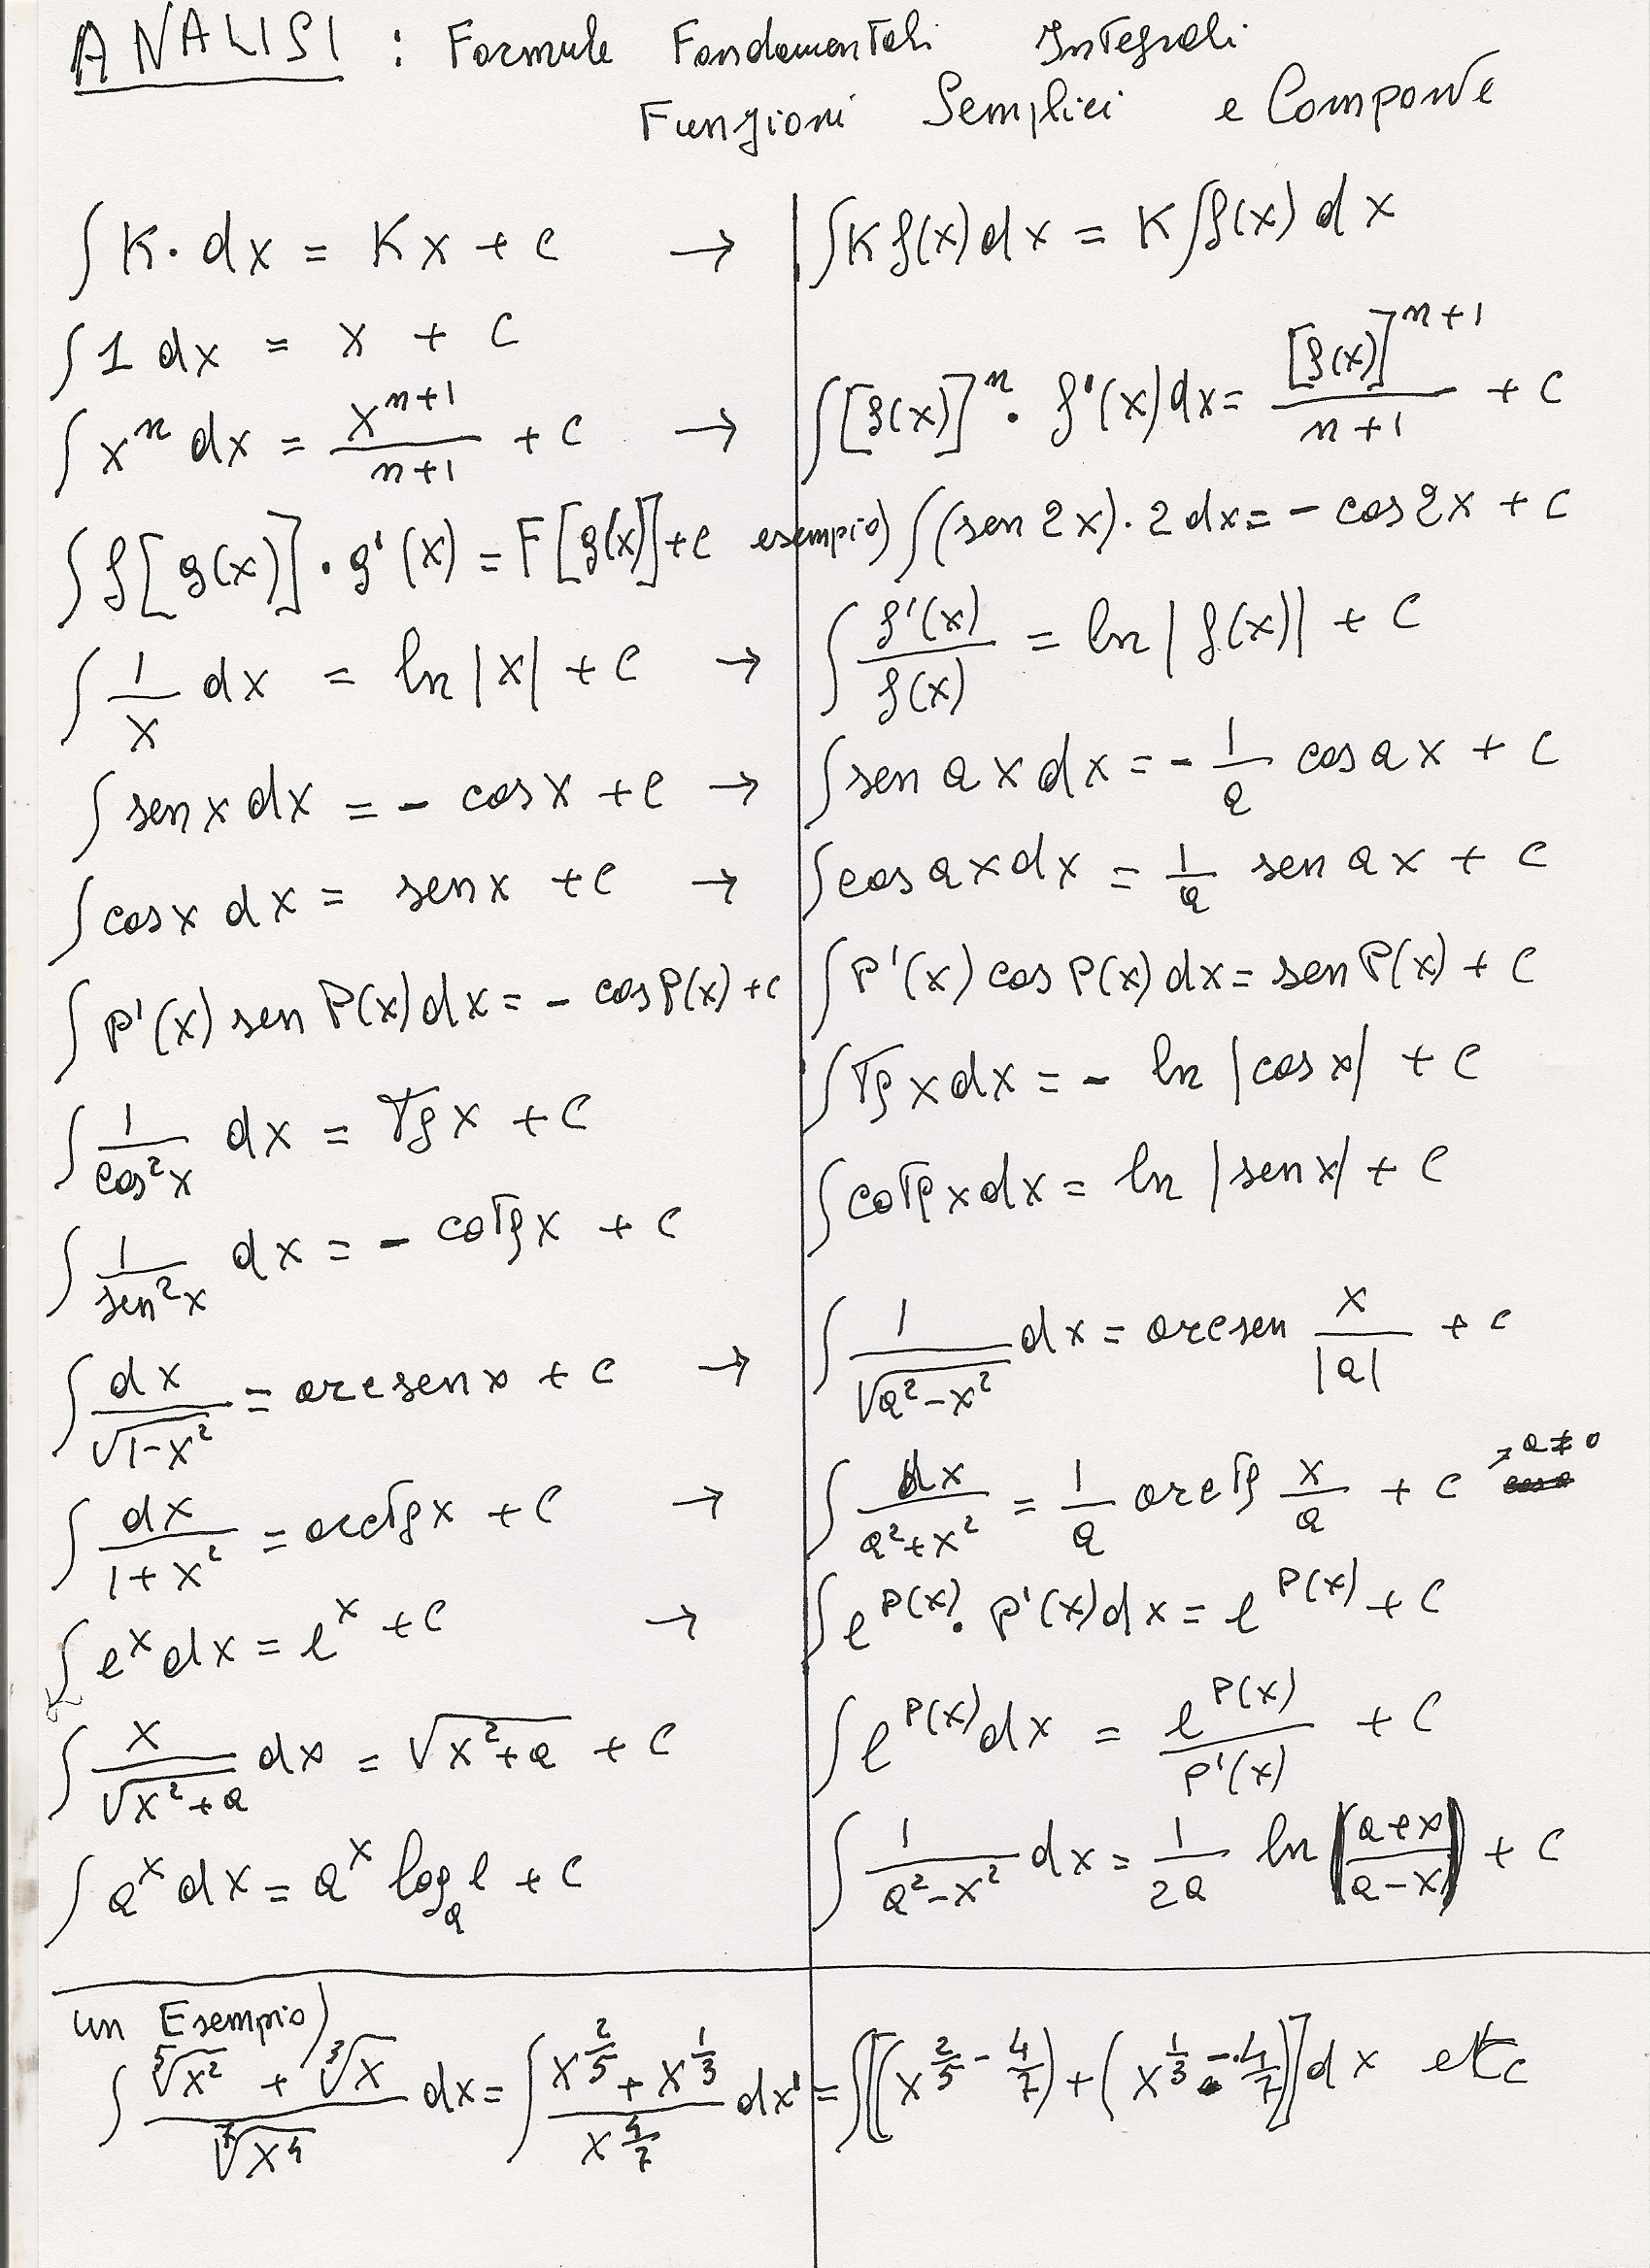 ANALISI : Formule Fondamentali Integrali
Funzioni Semplici e Composte
∫ K · dx = Kx + c → ∫ K f(x) dx = K ∫ f(x) dx
∫ 1 dx = x + c
∫ xⁿ dx = x^(n+1) / (n+1) + c → ∫ [f(x)]ⁿ · f'(x) dx = [f(x)]^(n+1) / (n+1) + c
∫ f[g(x)] · g'(x) = F[g(x)] + c esempio) ∫ (sen 2x) · 2 dx = - cos 2x + c
∫ 1/x dx = ln |x| + c → ∫ f'(x)/f(x) = ln |f(x)| + c
∫ sen x dx = - cos x + c → ∫ sen a x dx = - 1/a cos a x + c
∫ cos x dx = sen x + c → ∫ cos a x dx = 1/a sen a x + c
∫ P'(x) sen P(x) dx = - cos P(x) + c ∫ P'(x) cos P(x) dx = sen P(x) + c
∫ 1/cos²x dx = Tg x + c ∫ Tg x dx = - ln |cos x| + c
∫ 1/sen²x dx = - coTg x + c ∫ coTg x dx = ln |sen x| + c
∫ dx/√(1-x²) = arcsen x + c → ∫ 1/√(a²-x²) dx = arcsen x/|a| + c
∫ dx/(1+x²) = arcTg x + c → ∫ dx/(a²+x²) = 1/a arcTg x/a + c , a ≠ 0
∫ eˣ dx = eˣ + c → ∫ e^P(x) · P'(x) dx = e^P(x) + c
∫ x/√(x²+a) dx = √(x²+a) + c ∫ e^P(x) dx = e^P(x)/P'(x) + c
∫ aˣ dx = aˣ logₐ e + c ∫ 1/(a²-x²) dx = 1/2a ln |(a+x)/(a-x)| + c
un Esempio)
∫ (⁵√x² + ³√x)/⁷√x⁴ dx = ∫ (x^(2/5) + x^(1/3))/x^(4/7) dx = ∫ [(x^(2/5 - 4/7) + (x^(1/3 - 4/7)] dx etc